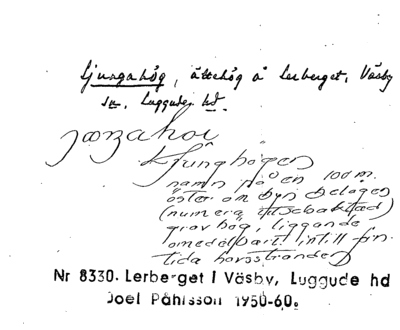 Ljungahög, ättehög å Lerberget, Väsby
sn, Luggude hd.
Ljunghögen
namn på en 100 m.
öster om byn belägen
(numera
gravhög, liggande
omedelbart intill forn-
tida havsstranden
Nr 8330. Lerberget i Väsby, Luggude hd
Joel Påhlsson 1950-60.